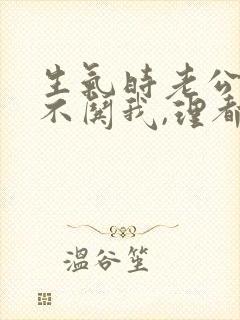 生氣時老公
不関我,理都
溫谷笙